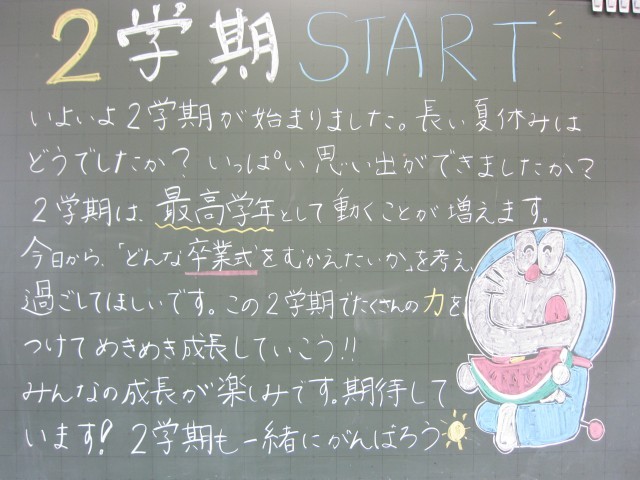 ２学期 START
いよいよ２学期が始まりました。長い夏休みは
どうでしたか？いっぱい思い出ができましたか？
２学期は、最高学年として動くことが増えます。
今日から、「どんな卒業式をむかえたいか」を考え、
過ごしてほしいです。この２学期でたくさんの力を
つけてめきめき成長していこう!!
みんなの成長が楽しみです。期待して
います！２学期も一緒にがんばろう